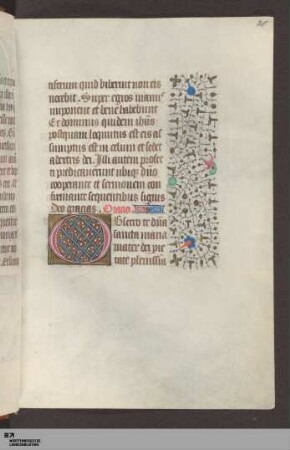 tiferum quid biberint non eis
nocebit. Super egros manus
imponent et bene habebunt
Et dominus quidem ihūs
postquam locutus est eis as
sumptus est in celum et sedet
a dextris dei. Illi autem profec
ti predicaverunt ubiqȝ dūo
cooperante et sermonem con
firmante sequentibus signis
Deo gratias. Oratio
Obsecro te dūa
sancta maria
mater dei pie
tate plenissīa
WÜRTTEMBERGISCHE
LANDESBIBLIOTHEK